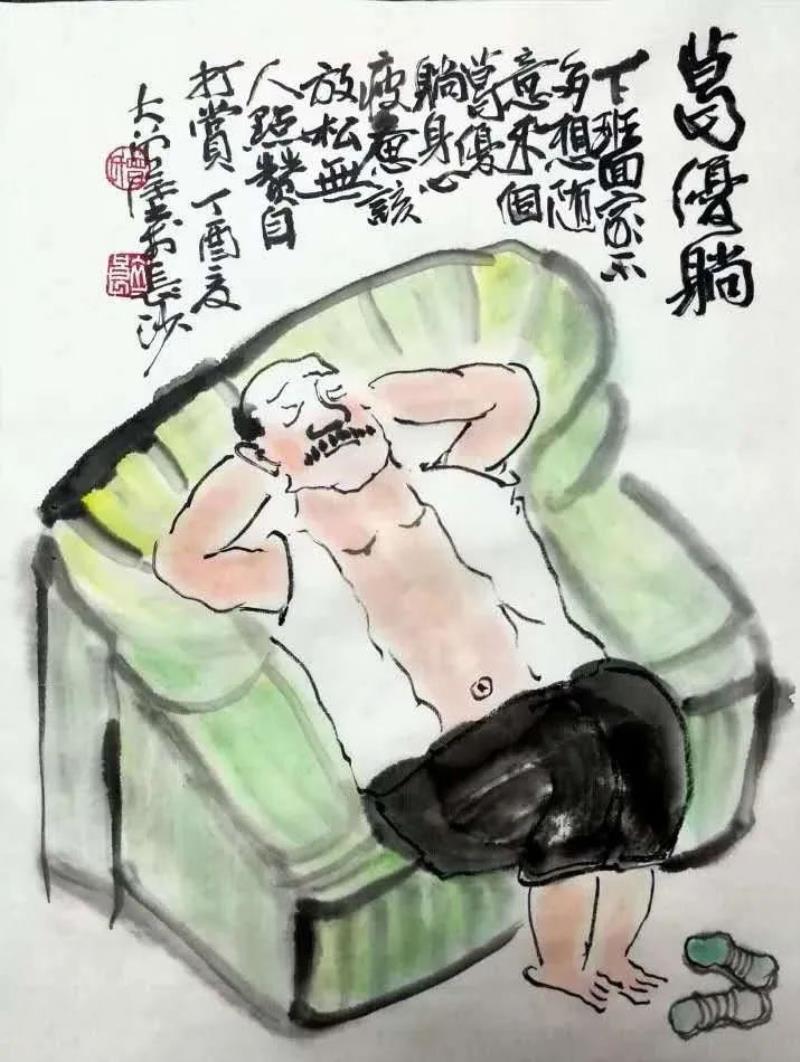 葛優躺
下班回家不
多想随
意来个
葛優
躺身心
疲惫該
放松無
人點贊自
打賞 丁酉夏
大 於長沙